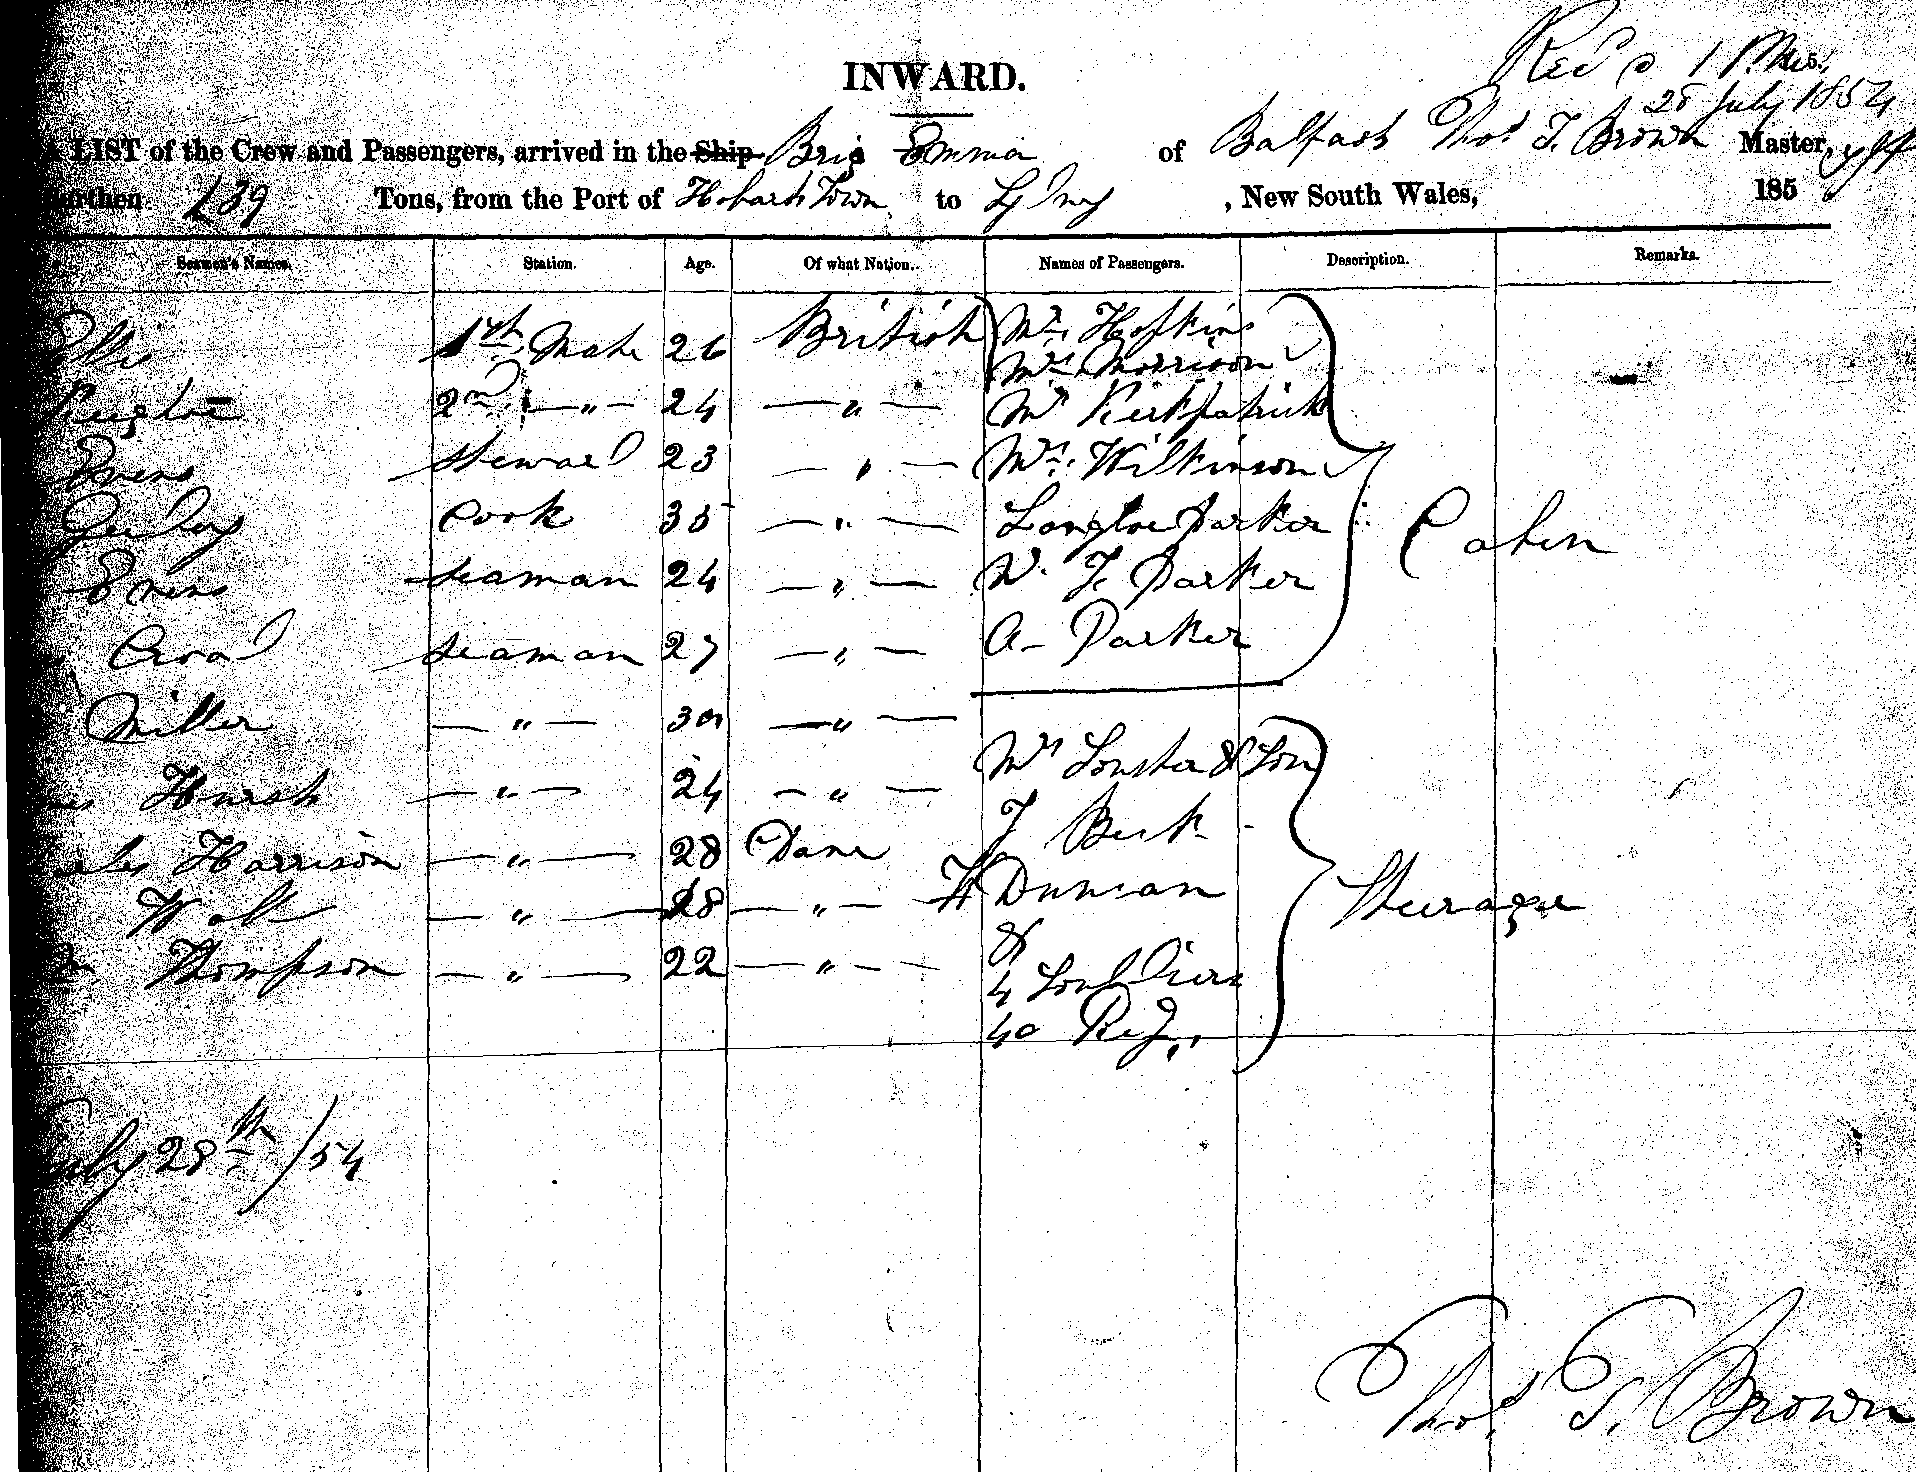 Rec'd 1 P.M.
28 July 1854
INWARD.
LIST of the Crew and Passengers, arrived in the Ship Brig Emma of Balfast Thos T. Brown Master,
Burthen 139 Tons, from the Port of Hobart Town to Sydney, New South Wales, 185
Seamen's Names. Station. Age. Of what Nation. Names of Passengers. Description. Remarks.
Ellis 1st Mate 26 British Mr Hopkins
Mrs Morrison
2nd " 24 " Mr Kirkpatrick
Evens Steward 23 " Mr Wilkinson
Cook 35 " Langloe Parker Cabin
Evens Seaman 24 " W. F. Parker
Seaman 27 " A Parker
Miller " 30 "
Mrs & Son
Hursh " 24 "
J Beck
Harrison " 28 Dane
H Duncan Steerage
Wolt " 28 "
&
Thompson " 22 "
4 Souldiers
40 Reg
July 28th /54
Thos T. Brown